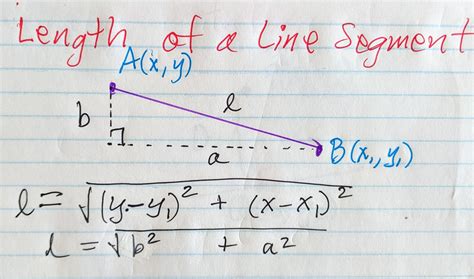 Length of a Line Segment
A(x, y)
b
l
a
B(x₁, y₁)
l = √(y-y₁)² + (x-x₁)²
l = √b² + a²